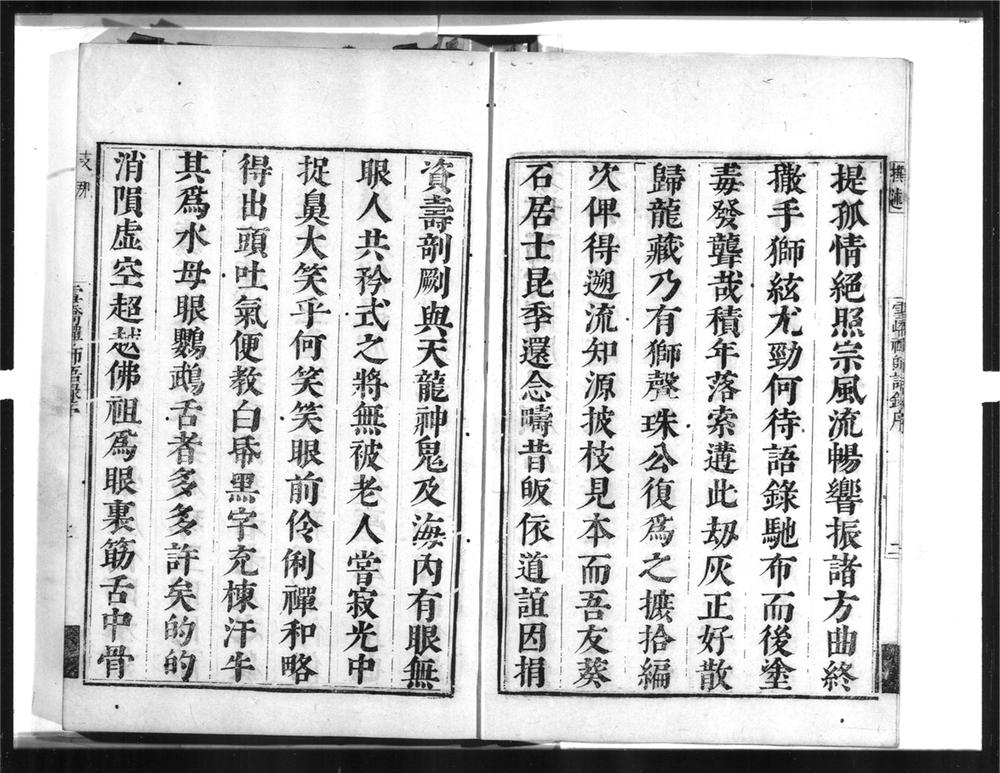 撰述
雲嶠禪師語錄序
二
提孤情絕照宗風流暢響振諸方曲終
撒手獅絃尤勁何待語錄馳布而後塗
毒發聾哉積年落索遘此刼灰正好散
歸龍藏乃有獅聲珠公復爲之摭拾編
次俾得遡流知源披枝見本而吾友葵
石居士昆季還念疇昔皈依道誼因捐
資壽剞劂與天龍神鬼及海內有眼無
眼人共矜式之將無被老人嘗寂光中
捉鼻大笑乎何笑笑眼前伶俐禪和略
得出頭吐氣便教白帋黑字充棟汗牛
其爲水母眼鸚鵡舌者多多許矣的的
消隕虛空超越佛祖爲眼裏筋舌中骨
支那
師語錄序